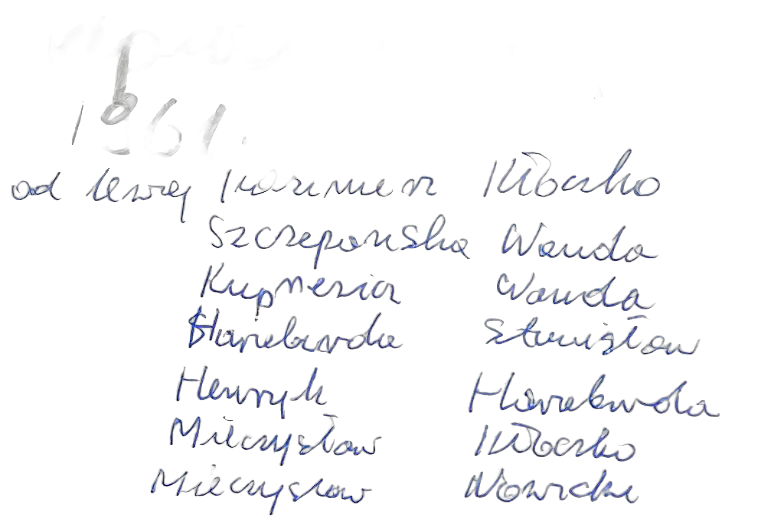 1961.
od lewej Kazimierz Kłoczko
Szczepańska Wanda
Wanda
Haraburda Stanisław
Henryk Haraburda
Mieczysław Kłoczko
Mieczysław Nowicki